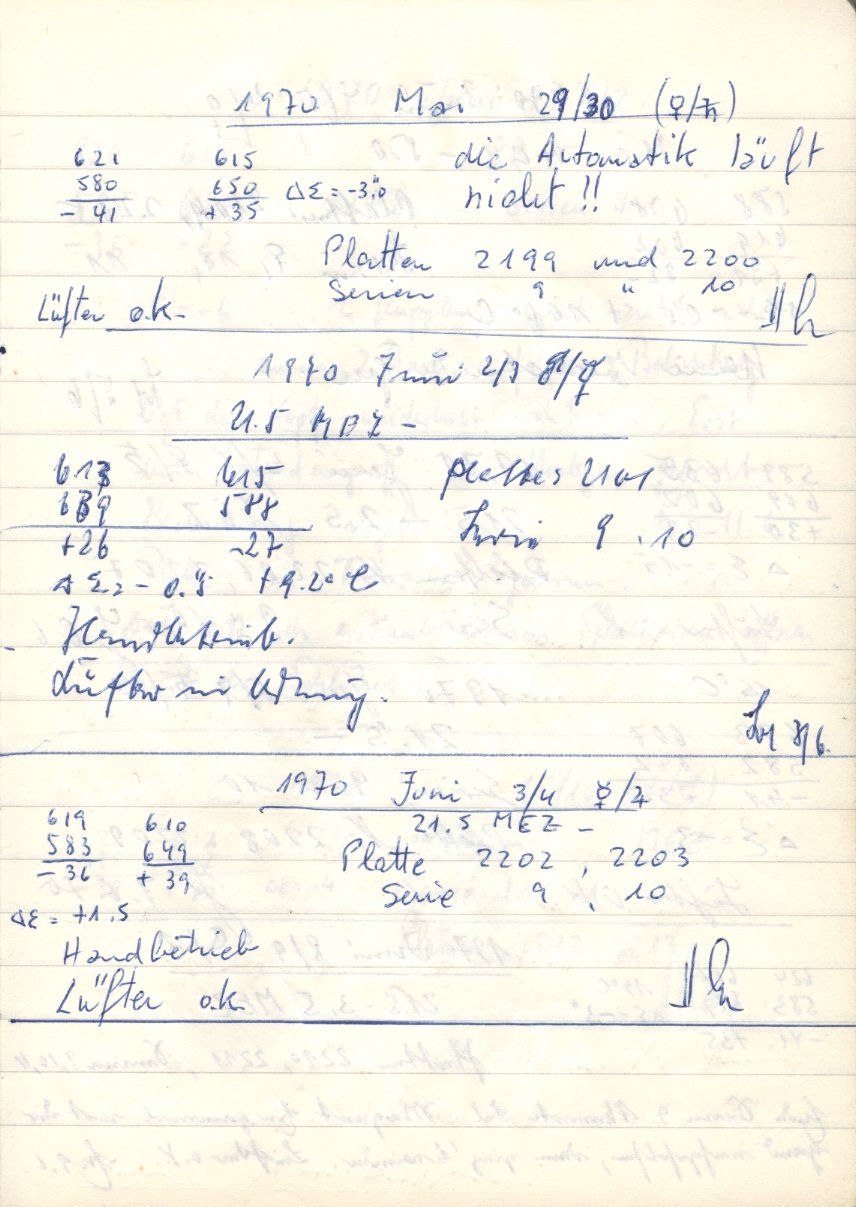 1970 Mai 29/30 (♀/♄)
621 615 die Automatik läuft
580 650 ΔΣ = -3.0 nicht!!
- 41 + 35
Platten 2199 und 2200
Serien 9 " 10
Lüfter o.k.
1970 Juni 2/3 ♂/☿
21.5 MEZ -
613 615
639 588
+26 -27
Platten 2101
Serie 9 . 10
ΔΣ = - 0.5 +9.2°C
Handbetrieb.
Lüfter in Ordnung.
8/6.
1970 Juni 3/4 ☿/♃
21.5 MEZ -
619 610
583 649
- 36 + 39
Platte 2202 , 2203
Serie 9 , 10
ΔΣ = +1.5
Handbetrieb
Lüfter o.k.